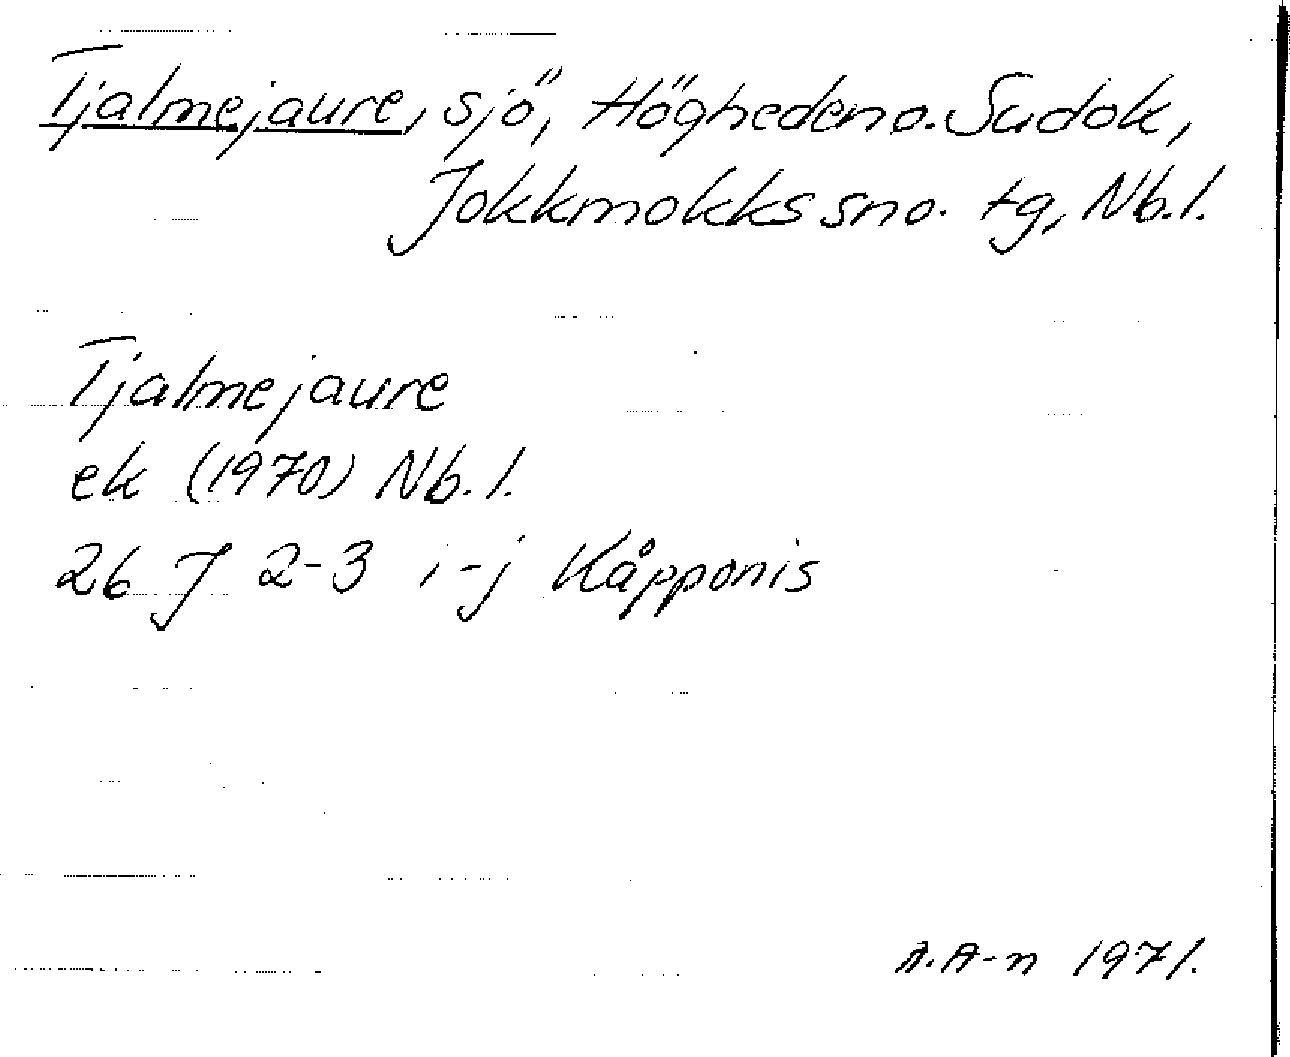 Tjalmejaure, sjö, Högheden o. Sudok,
Jokkmokks sn o. tg, Nb. l.
Tjalmejaure
ek (1970) Nb. l.
26 J 2-3 i-j Kåpponis
A. A-n 1971.